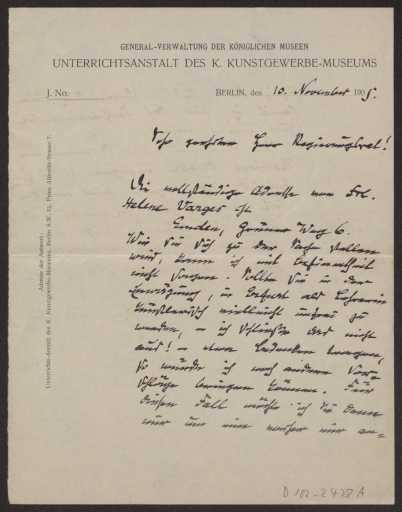 GENERAL-VERWALTUNG DER KÖNIGLICHEN MUSEEN
UNTERRICHTSANSTALT DES K. KUNSTGEWERBE-MUSEUMS
J. No.
BERLIN, den 10. November 1905.
Sehr geehrter Herr Regierungsrat!
Die vollständige Adresse von Frl.
Helene Varges ist
Emden, Grüner Weg 6.
Wie Sie sich zu der Sache stellen
wird, kann ich mit Bestimmtheit
nicht sagen. Sollten Sie in der
Erwägung, in Erfurt als Lehrerin
künstlerisch vielleicht
werden, – ich das nicht
aus! – etwa Bedenken tragen,
so würde ich noch andere Vor=
schläge bringen können. Für
diesen Fall möchte ich Sie dann
nur um eine an=
Adresse der Antwort:
Unterrichts-Anstalt des K. Kunstgewerbe-Museums, Berlin S.W. 11, Prinz Albrecht-Strasse 7.
D 102-2428 A